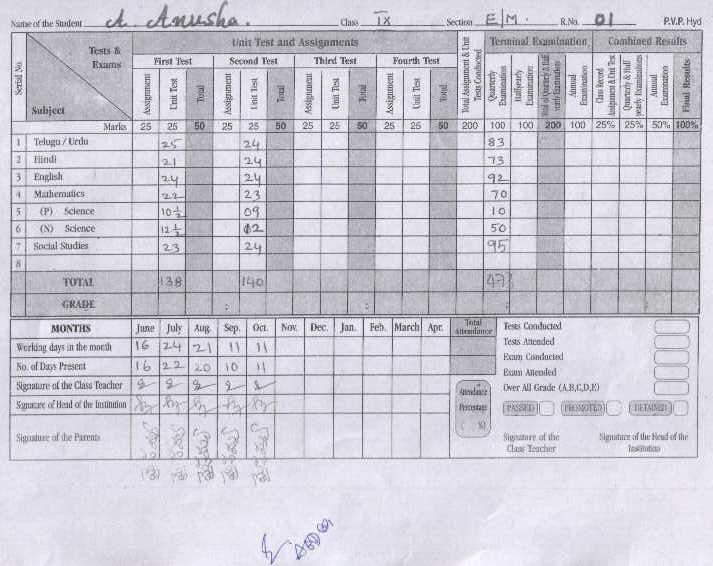 Name of the Student A. Anusha. Class IX Section E/M. R.No. 01 P.V.P. Hyd
Serial No. Tests & Exams Subject
Unit Test and Assignments Total Assignment & Unit Tests Conducted Terminal Examination Combined Results
First Test Second Test Third Test Fourth Test
Assignment Unit Test Total Assignment Unit Test Total Assignment Unit Test Total Assignment Unit Test Total Quarterly Examination Halfyearly Examination Total of Quarterly & Half yearly Examination Annual Examination Class Record Assignment & Unit Test Quarterly & Half yearly Examinations Annual Examination Final Results
Marks 25 25 50 25 25 50 25 25 50 25 25 50 200 100 100 200 100 25% 25% 50% 100%
1 Telugu / Urdu 25 24 83
2 Hindi 21 24 73
3 English 24 24 92
4 Mathematics 22 23 70
5 (P) Science 10 1/2 09 10
6 (N) Science 12 1/2 12 50
7 Social Studies 23 24 95
8
TOTAL 138 140
GRADE : : : :
MONTHS June July Aug. Sep. Oct. Nov. Dec. Jan. Feb. March Apr. Total Attendance
Working days in the month 16 24 21 11 11
No. of Days Present 16 22 20 10 11
Signature of the Class Teacher
Signature of Head of the Institution
Signature of the Parents
Attendance
Percentage
( %)
Tests Conducted
Tests Attended
Exam Conducted
Exam Attended
Over All Grade (A,B,C,D,E)
PASSED PROMOTED DETAINED
Signature of the Class Teacher
Signature of the Head of the Institution